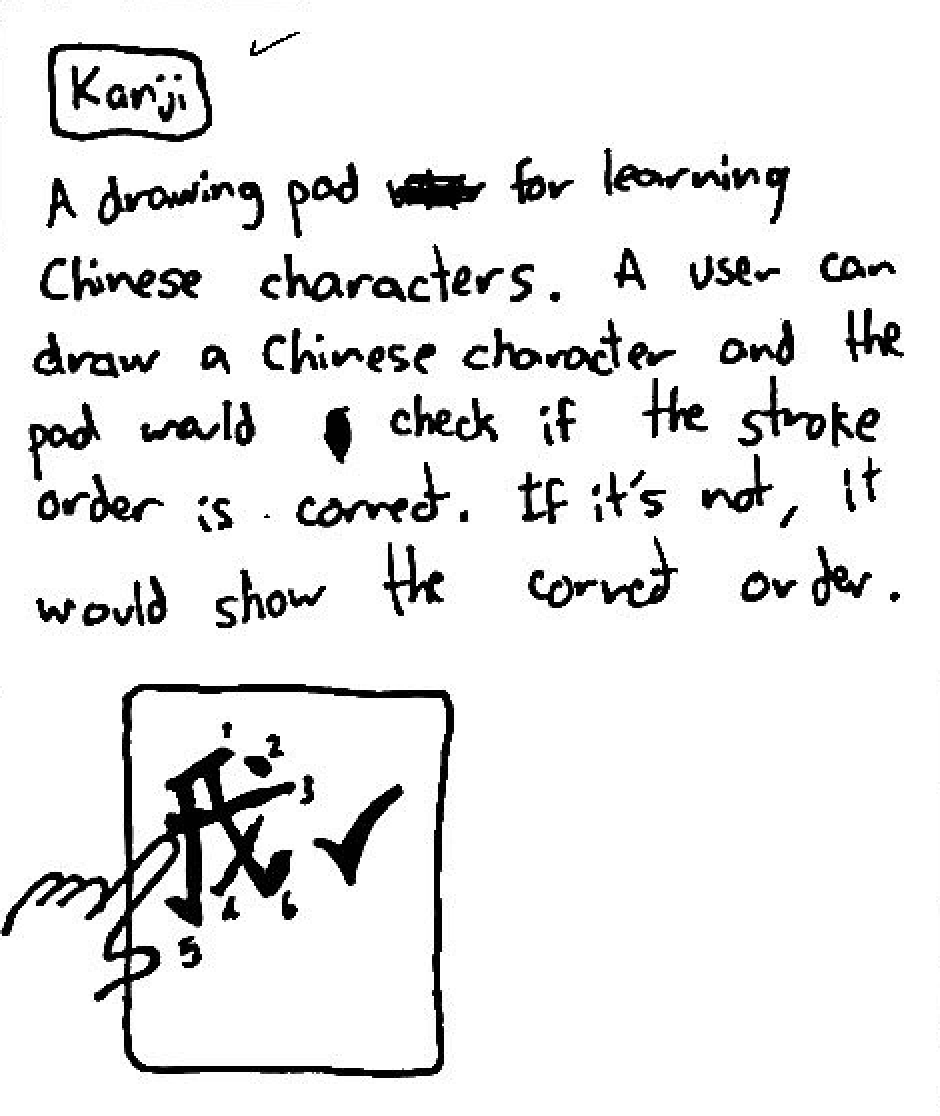 Kanji
A drawing pad for learning
Chinese characters. A user can
draw a Chinese character and the
pad would check if the stroke
order is correct. If it's not, it
would show the correct order.
1
2
3
4
6
5